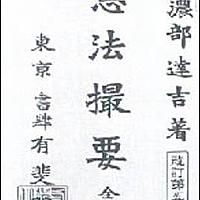 濃部達吉著
改訂第
憲法撮要 全
東京 書肆 有斐